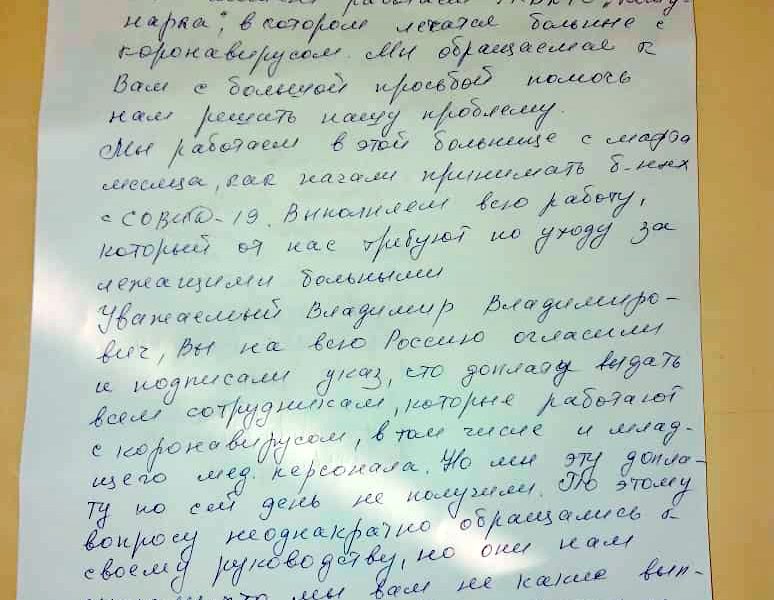 работаем
нарка", в котором лежатся больные с
коронавирусом. Мы обращаемся к
Вам с большой просьбой помочь
нам решить нашу проблему.
Мы работаем в этой больнице с марта
месяца, как начали принимать б-ных
с COВИD-19. Выполняем всю работу,
который от нас требуют по уходу за
лежащими больными
Уважаемый Владимир Владимиро-
вич, Вы на всю Россию огласили
и подписали указ, сто доплату выдать
всем сотрудникам, которые работают
с коронавирусом, в том числе и млад-
щего мед. персонала. Но мы эту допла-
ту по сей день не получили. По этому
вопросу неоднакрачно обращались к
своему руководству, но они нам
что мы вам не какие вып-